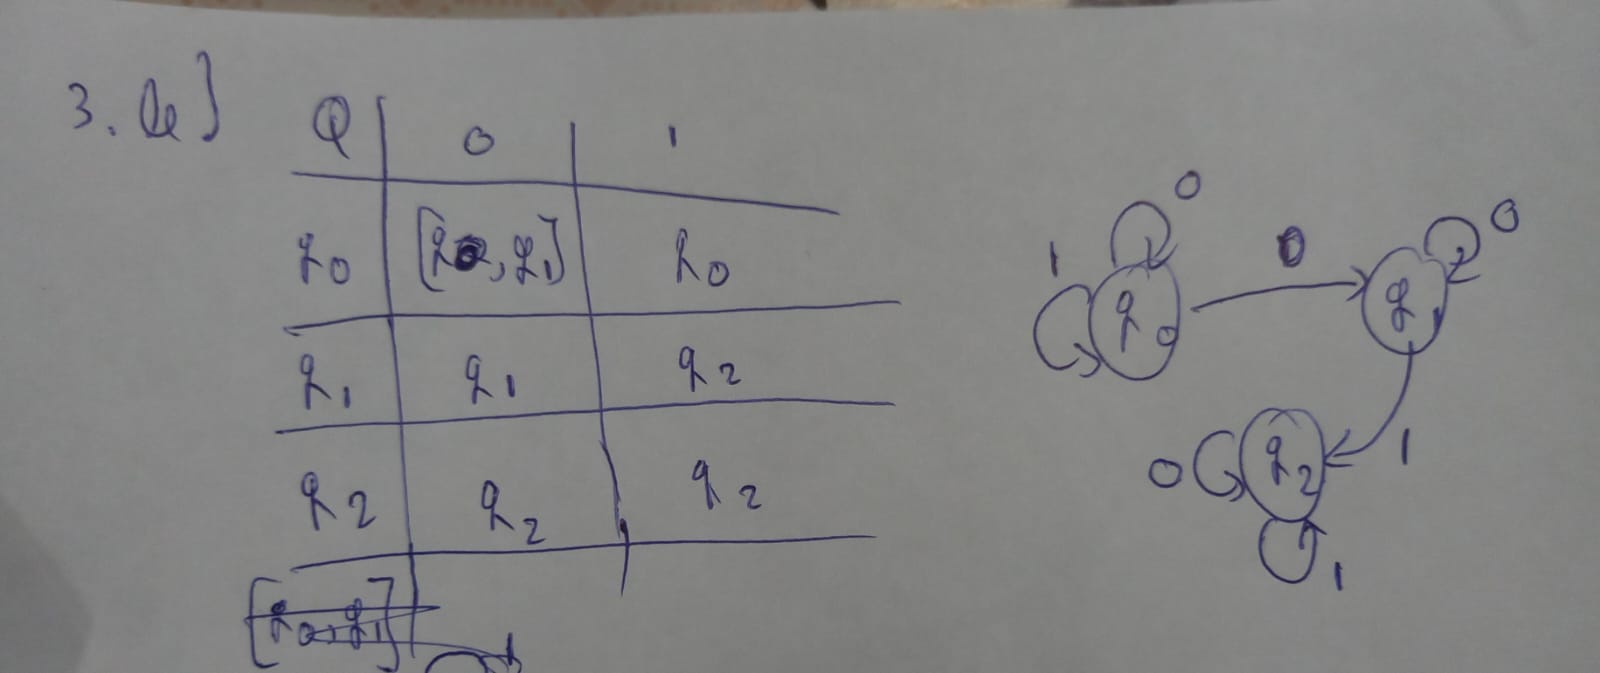 3. b]
Q 0 1
q0 [q0, q1] q0
q1 q1 q2
q2 q2 q2
[q0, q1]
0
1 0 0
q0 q1
0 q2 1
1